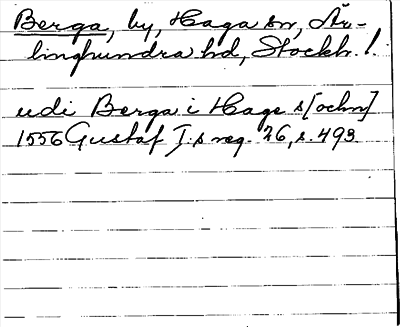 Berga, by, Haga sn, Är-
linghundra hd, Stockh. l.
udi Berga i Hage s[ochn]
1556 Gustaf I:s reg. 26, s. 493